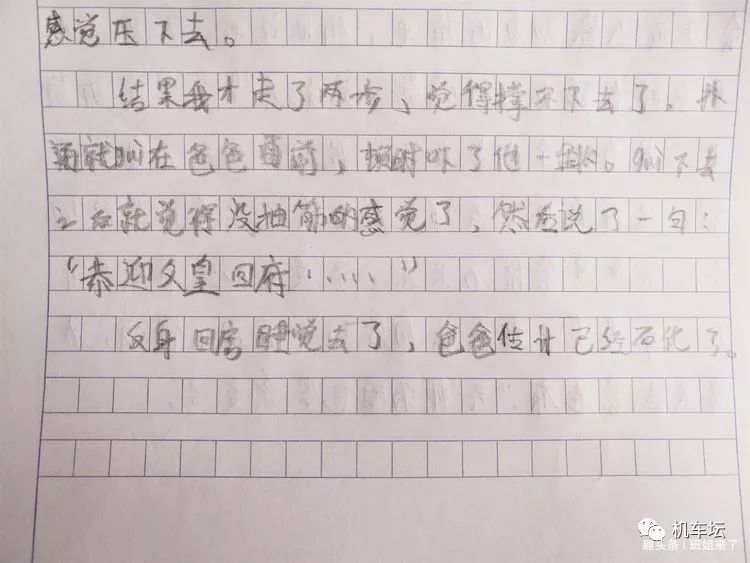 感觉压下去。
结果我才走了两步，觉得撑不下去了，扑
通就跪在爸爸面前，顿时吓了他一跳。跪下去
之后就觉得没抽筋的感觉了，然后说了一句：
“恭迎父皇回府……”
反身回房睡觉去了，爸爸估计已经石化了。
机车坛
趣头条 | 班姐来了